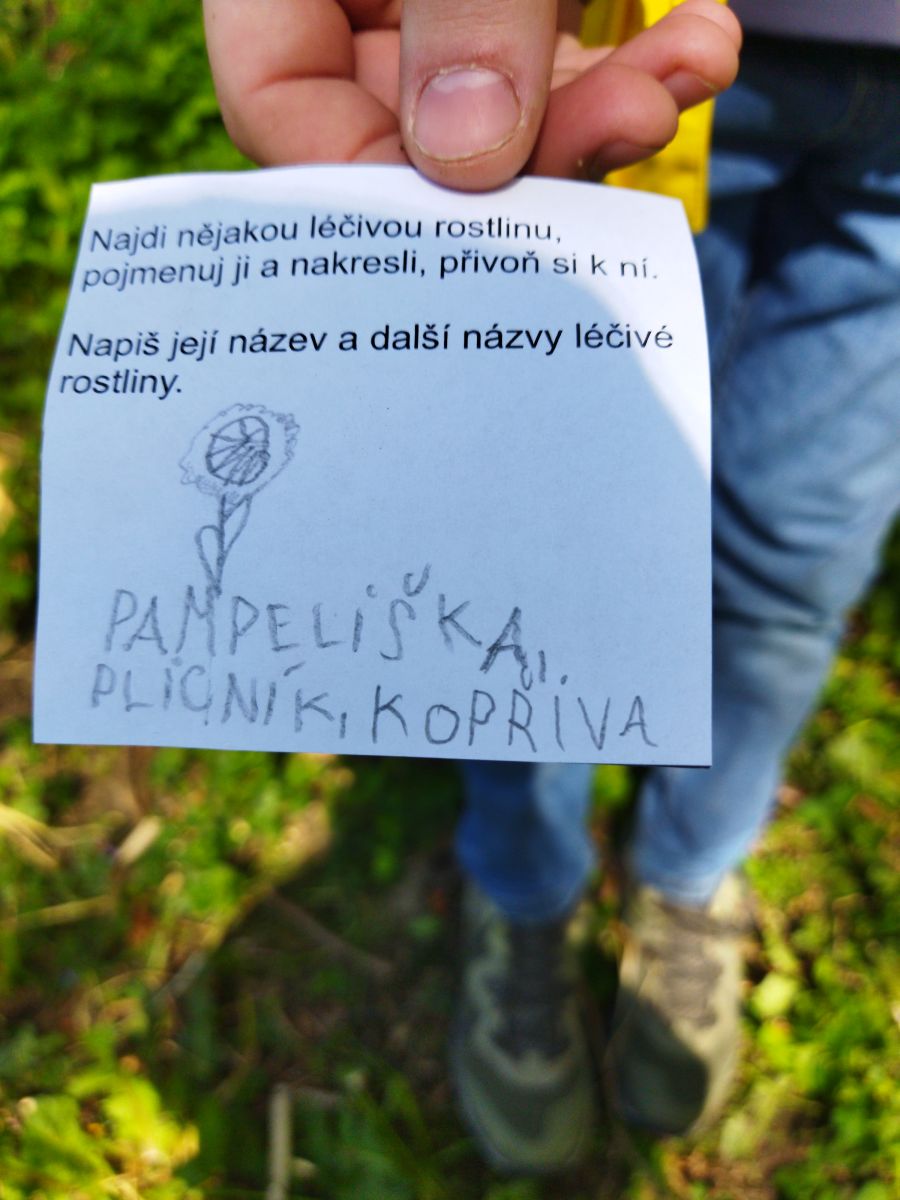 Najdi nějakou léčivou rostlinu,
pojmenuj ji a nakresli, přivoň si k ní.
Napiš její název a další názvy léčivé
rostliny.
PAMPELiŠKA,
PLiCNÍK, KOPŘIVA